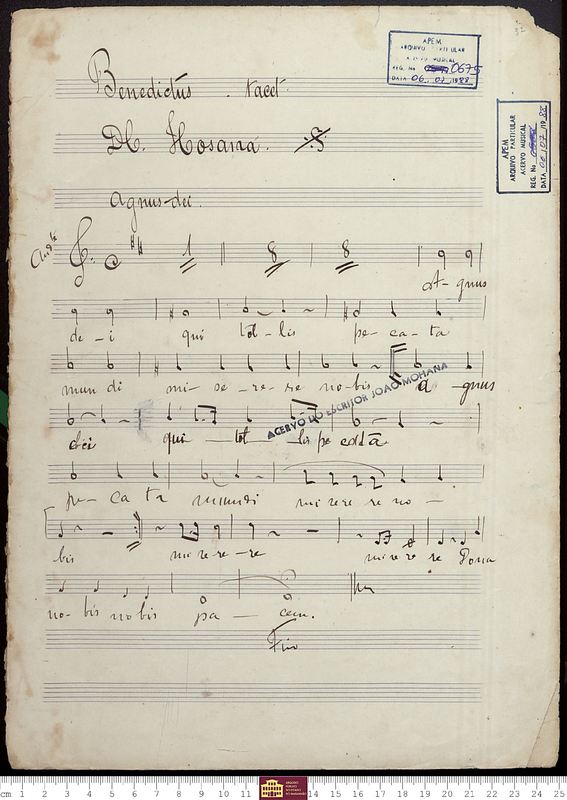 APEM
ARQUIVO PARTICULAR
ACERVO MUSICAL
REG. No 0675
DATA 06. 07. 1988
APEM
ARQUIVO PARTICULAR
ACERVO MUSICAL
REG. No
DATA 06/07/1988
Benedictus . tacet.
DC. Hosana.
Agnus-dei.
Andte
1 8 8
A-gnus
de-i qui tol-lis pe-ca-ta
mun di mi-se-re-re no-bis A-gnus
ACERVO DO ESCRITOR JOÃO MOHANA
dei qui tol-lis pe
pe-ca ta mundi mi rere re no-
bis mi re re-re mi re re re Dona
no-bis no bis pa-cem.
Fim
cm 1 2 3 4 5 6 7 8 9 10 11 14 15 16 17 18 19 20 21 22 23 24 25